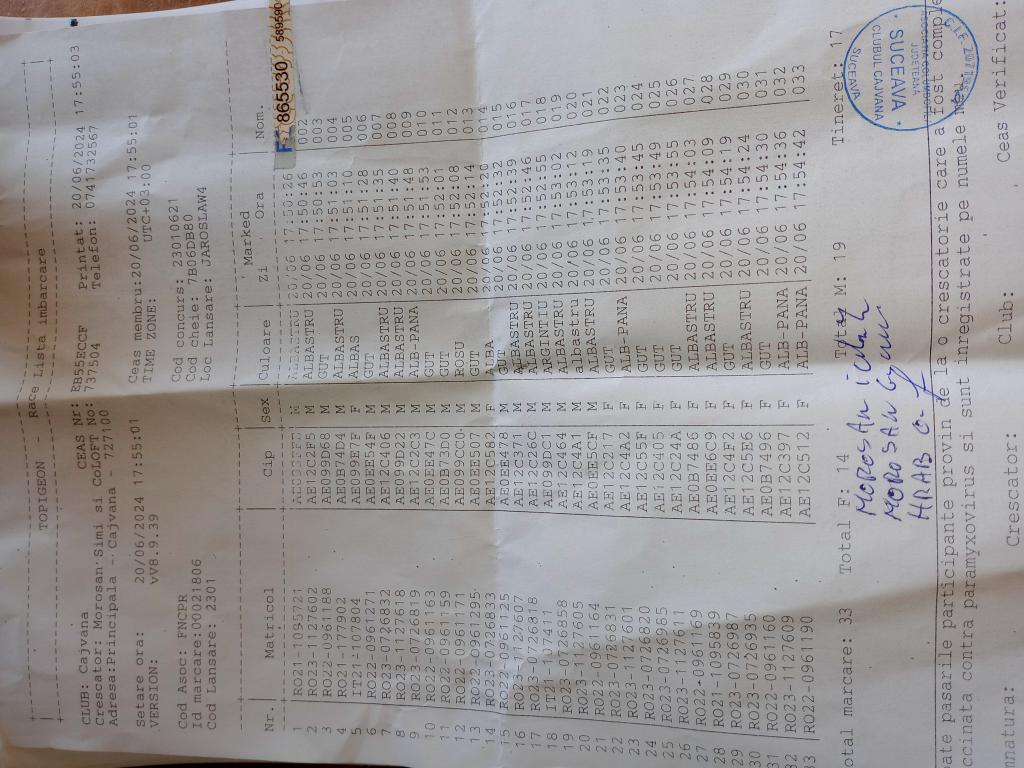 TOPIGEON - Race Lista imbarcare
CLUB: Cajvana CEAS Nr: EB55ECCF Printat: 20/06/2024 17:55:03
Crescator: Morosan Simi si COLOFT No: 737504 Telefon: 0741732567
Adresa:Principala -- Cajvana - 727100
Setare ora: 20/06/2024 17:55:01 Ceas membru:20/06/2024 17:55:01
VERSION: vV8.9.39 TIME ZONE: UTC+03:00
Cod Asoc: FNCPR Cod concurs: 23010621
id marcare:00021806 Cod cheie: 7B06DB80
Cod Lansare: 2301 Loc Lansare: JAROSLAW4
Marked
Nr. Matricol Cip Sex Culoare Zi Ora Nom.
1 RO21-1095721 M ALBASTRU 20/06 17:50:26
2 RO23-1127602 AE12C2F5 M ALBASTRU 20/06 17:50:46
3 RO22-0961188 AE099D68 M GUT 20/06 17:50:53 003
4 RO21-177902 AE0B74D4 M ALBAS 20/06 17:51:03 004
5 IT21-107804 AE099E7F F ALBAS 20/06 17:51:10 005
6 RO22-0961271 AE0EE54F M GUT 20/06 17:51:28 006
7 RO23-0726832 AE12C406 M GUT 20/06 17:51:35 007
8 RO23-1127618 AE099D22 M ALBASTRU 20/06 17:51:40 008
9 RO23-0726819 AE12C2C3 M ALBASTRU 20/06 17:51:48 009
10 RO22-0961163 AE0EE47C M ALB-PANA 20/06 17:51:53 010
11 RO22-0961159 AE0B73D0 M GUT 20/06 17:52:01 011
12 RO22-0961171 AE099CC0 M ROSU 20/06 17:52:08 012
13 RO22-0961295 AE0EE507 M GUT 20/06 17:52:14 013
14 RO23-0726833 AE12C582 F ALBA 20/06 17:52:26 014
15 RO22-0961125 AE0EE478 M GUT 20/06 17:52:32 015
16 RO23-1127607 AE12C371 M ALBASTRU 20/06 17:52:39 016
17 RO23-0726818 AE12C26C M ALBASTRU 20/06 17:52:46 017
18 IT21-17411 AE099D61 M ARGINTIU 20/06 17:52:55 018
19 RO23-0726858 AE12C464 M ALBASTRU 20/06 17:53:02 019
20 RO23-1127605 AE12C4A1 M albastru 20/06 17:53:12 020
21 RO22-0961164 AE0EE5CF M ALBASTRU 20/06 17:53:19 021
22 RO23-0726831 AE12C217 F GUT 20/06 17:53:35 022
23 RO23-1127601 AE12C4A2 F ALB-PANA 20/06 17:53:40 023
24 RO23-0726820 AE12C405 F GUT 20/06 17:53:45 024
25 RO23-0726986 AE12C55F F GUT 20/06 17:53:49 025
26 RO23-1127611 AE12C24A F GUT 20/06 17:53:55 026
27 RO22-0961169 AE0B7486 F ALBASTRU 20/06 17:54:03 027
28 RO21-1095839 AE0EE6C9 F ALBASTRU 20/06 17:54:09 028
29 RO23-0726987 AE12C4F2 F GUT 20/06 17:54:19 029
30 RO23-0726935 AE12C5E6 F ALBASTRU 20/06 17:54:24 030
31 RO22-0961160 AE0B7496 F GUT 20/06 17:54:30 031
32 RO23-1127609 AE12C397 F ALB-PANA 20/06 17:54:36 032
33 RO22-0961190 AE12C512 F ALB-PANA 20/06 17:54:42 033
otal marcare: 33 Total F: 14 Total M: 19 Tineret: 17
MOROSAN
MOROSAN
HRAB
JUDETEANA
SUCEAVA
CLUBUL CAJVANA
SUCEAVA
865530
589590
pate pasarile participante provin de la o crescatorie care a fost comple
ccinata contra paramyxovirus si sunt inregistrate pe numele
Crescator: Club: Ceas Verificat:
mnatura: